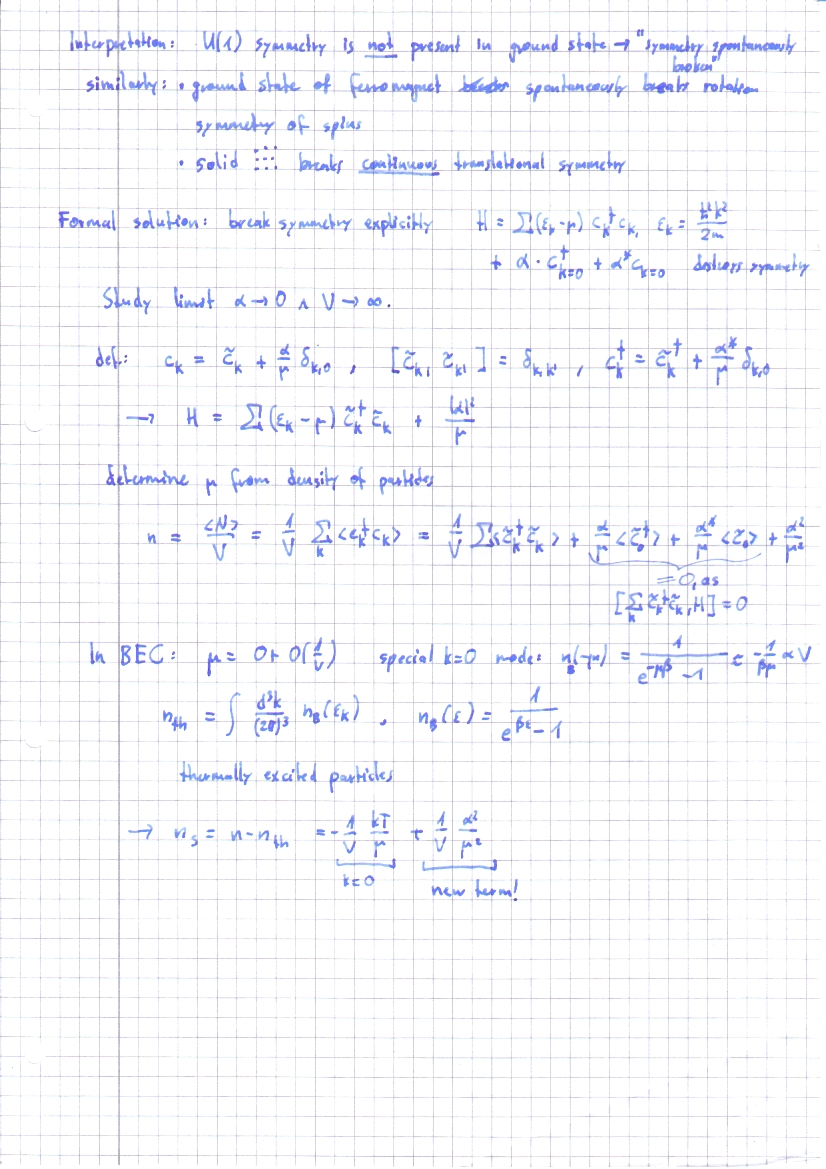 Interpretation: U(1) symmetry is not present in ground state → "symmetry spontaneously broken"
similarly: • ground state of ferromagnet spontaneously breaks rotation
symmetry of spins
• solid breaks continuous translational symmetry
Formal solution: break symmetry explicitly H = ∑(ε_k - μ) c_k^† c_k, ε_k = ħ²k²/2m
+ α · c_{k=0}^† + α* c_{k=0} destroys symmetry
Study limit α → 0 ∧ V → ∞.
def.: c_k = c̃_k + α/μ δ_{k,0} , [c̃_k, c̃_k'] = δ_{k,k'} , c_k^† = c̃_k^† + α*/μ δ_{k,0}
→ H = ∑(ε_k - μ) c̃_k^† c̃_k + |α|²/μ
determine μ from density of particles
n = <N>/V = 1/V ∑_k <c_k^† c_k> = 1/V ∑<c̃_k^† c̃_k> + α/μ <c̃_0^†> + α*/μ <c̃_0> + α²/μ²
= 0, as
[∑_k c̃_k^† c̃_k, H] = 0
In BEC: μ = 0 + O(1/V) special k=0 mode: n_B(-μ) = 1/(e^{-μβ} - 1) ≈ -1/βμ ∝ V
n_th = ∫ d³k/(2π)³ n_B(ε_k) , n_B(ε) = 1/(e^{βε} - 1)
thermally excited particles
→ n_s = n - n_th = - 1/V kT/μ + 1/V α²/μ²
k=0 new term!